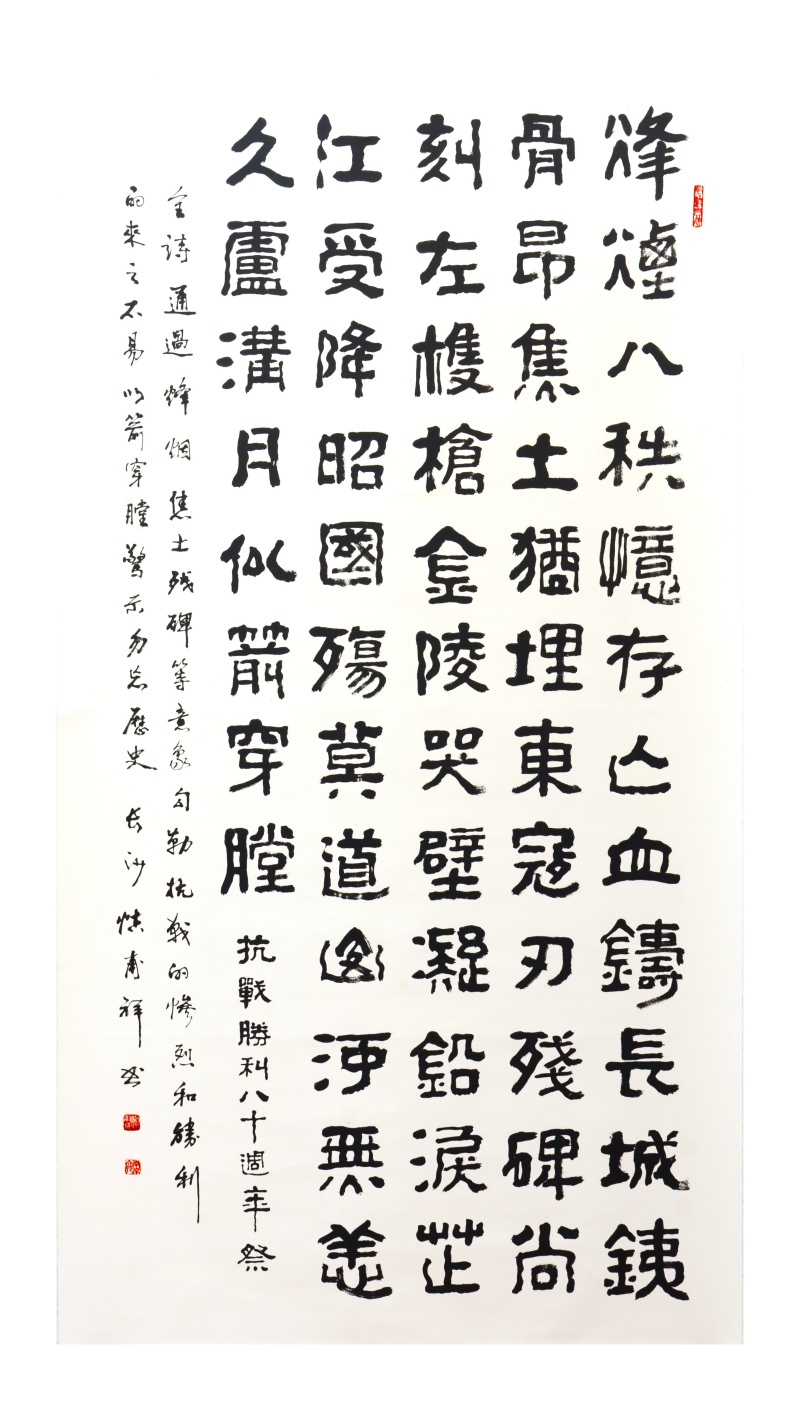 烽煙八秩憶存亡血鑄長城銕
骨昂焦土猶埋東寇刃殘碑尚
刻左權槍金陵哭壁凝鉛淚芷
江受降昭國殤莫道河無恙
久盧溝月似箭穿膛
抗戰勝利八十週年祭
全詩通過烽烟焦土残碑等意象勾勒抗戰的慘烈和勝利
的來之不易以箭穿膛警示勿忘歷史 长沙慎甫祥书